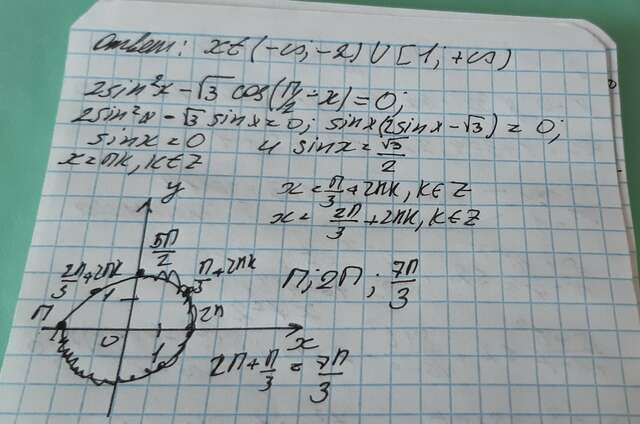 Ответ: x∈(-∞; -2)∪[1; +∞)
2sin²x - √3 cos(π/2 - x) = 0;
2sin²x - √3 sinx = 0; sinx(2sinx - √3) = 0;
sinx = 0 и sinx = √3/2
x = πk, k∈Z x = π/3 + 2πk, k∈Z
x = 2π/3 + 2πk, k∈Z
y
5π/2
2π/3 + 2πk π/3 + 2πk π; 2π; 7π/3
1
π 2π
0 1 x
2π + π/3 = 7π/3